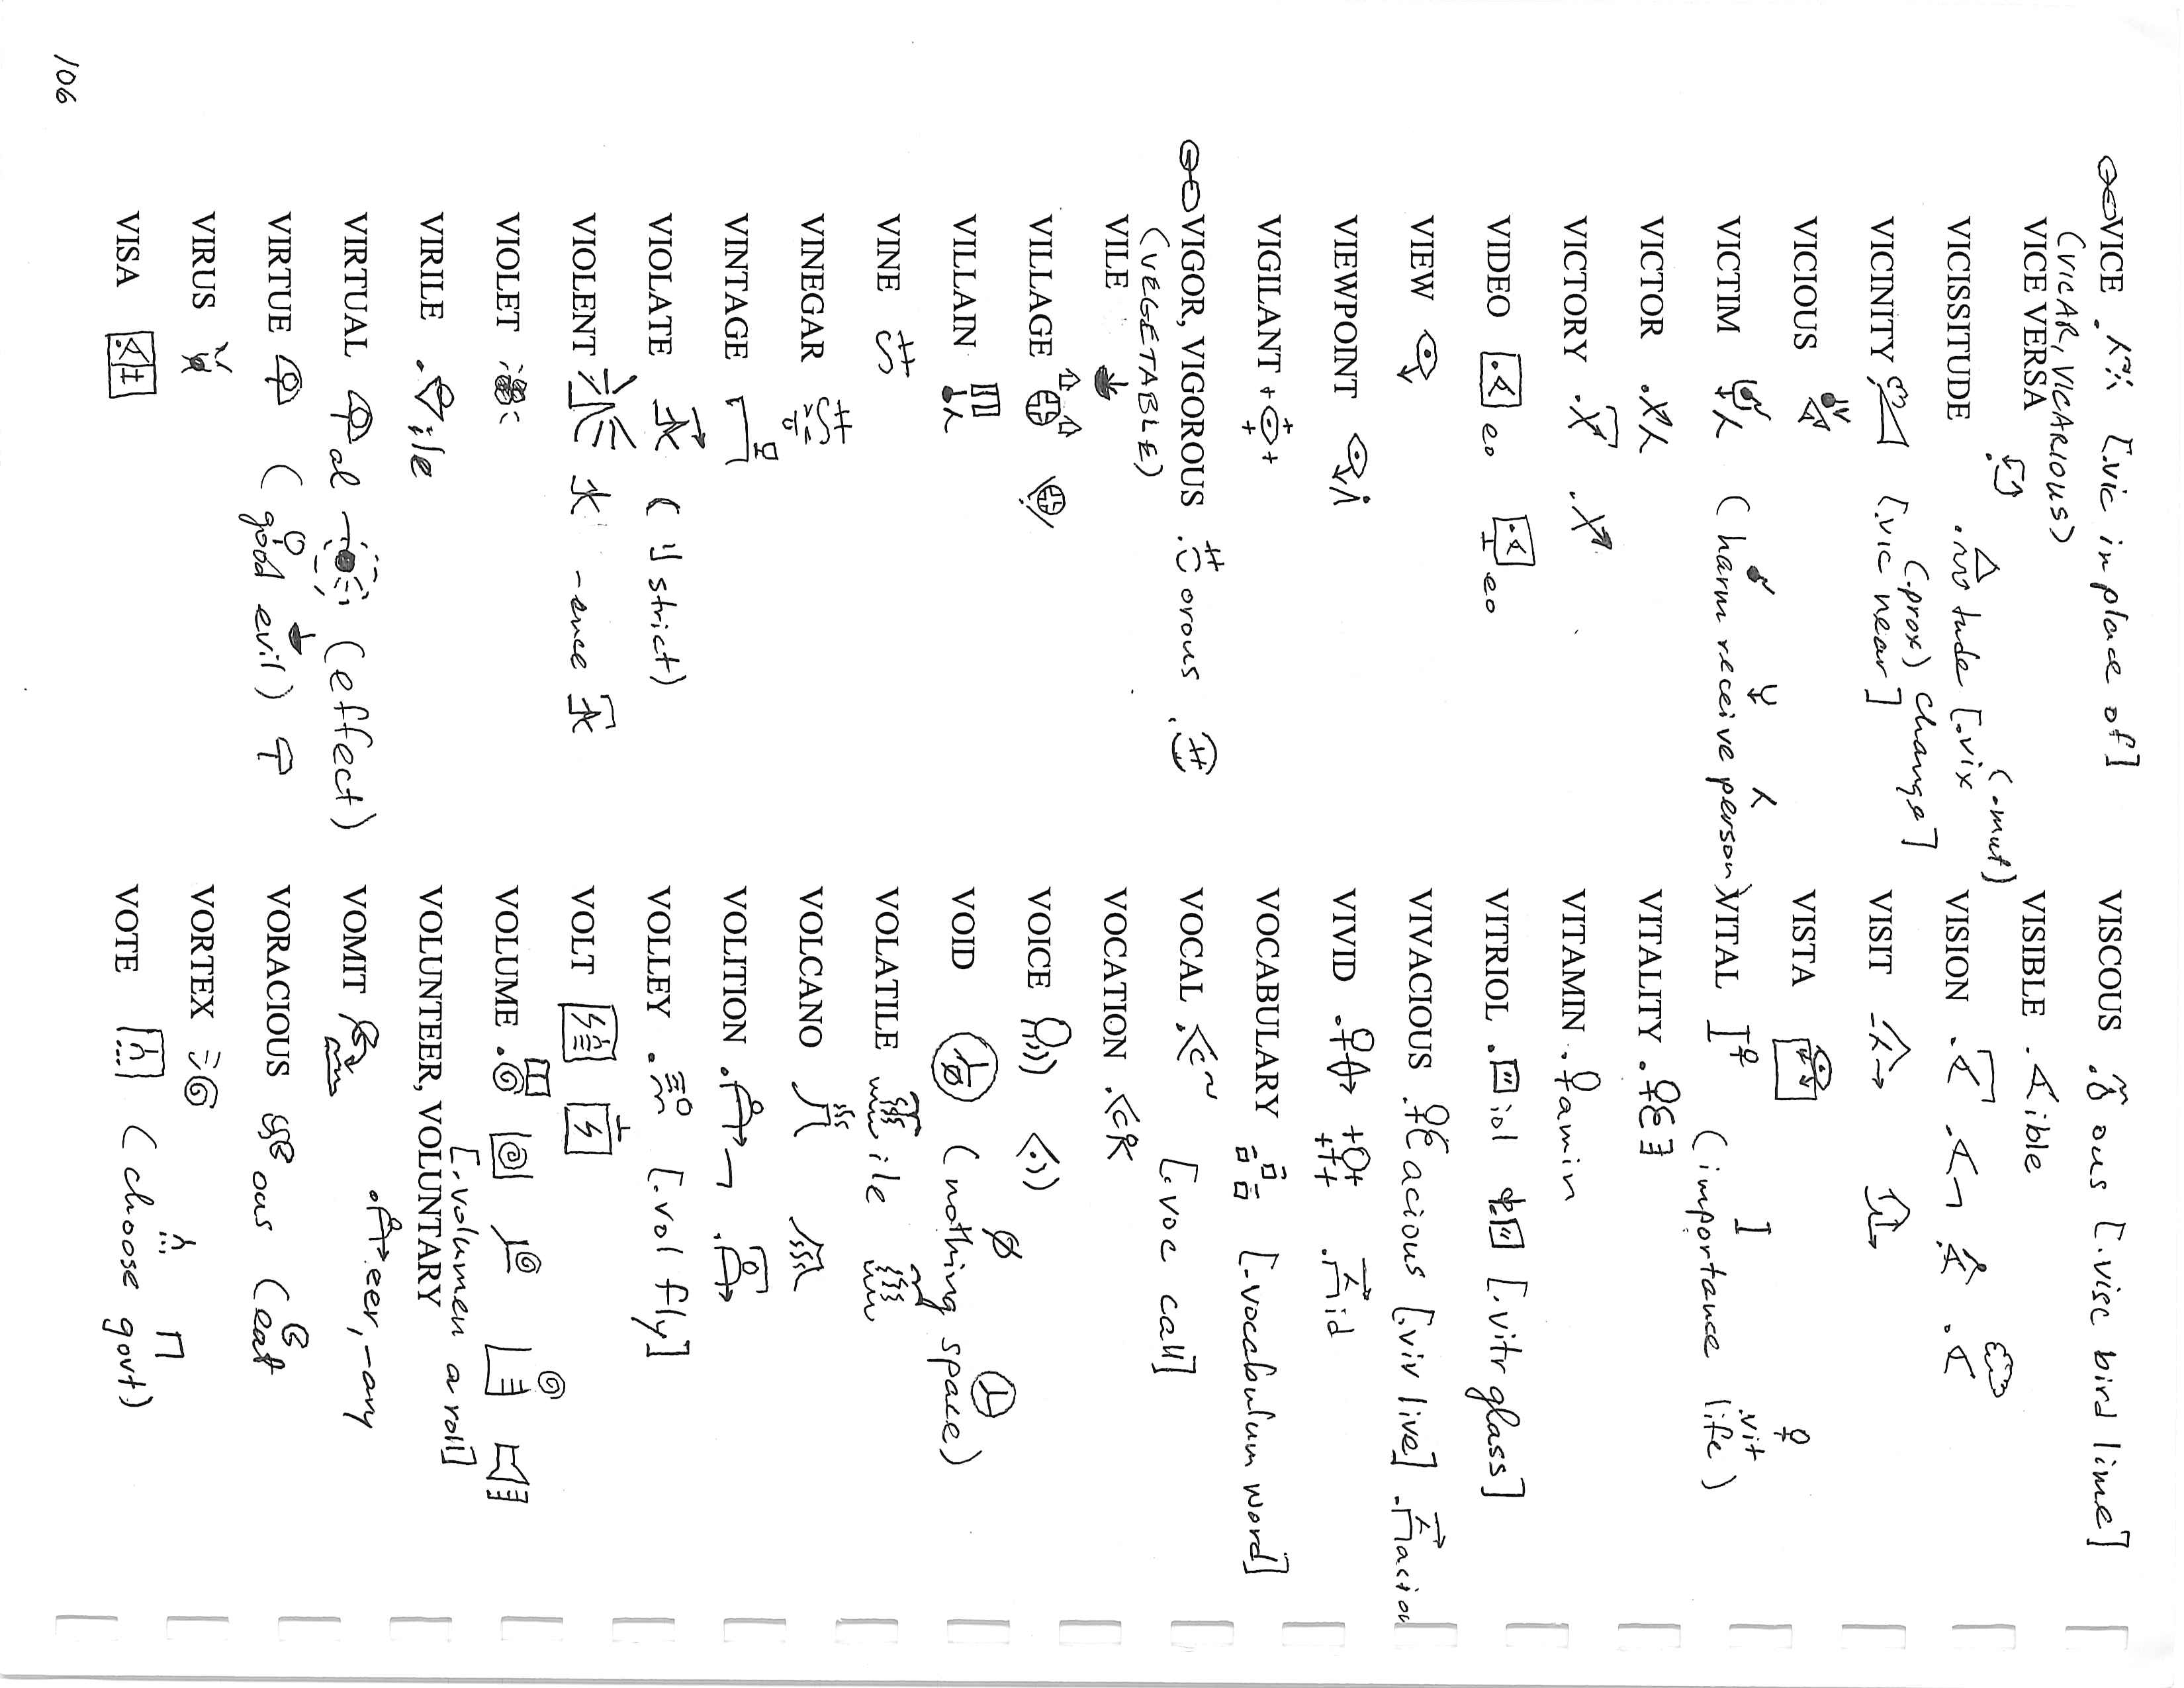 VICE . [.vic in place of]
(VICAR, VICARIOUS)
VICE VERSA
VICISSITUDE . tude [.vix change]
(.mut)
VICINITY [.vic near]
(.prox)
VICIOUS
VICTIM (harm receive person)
VICTOR
VICTORY
VIDEO eo eo
VIEW
VIEWPOINT
VIGILANT
VIGOR, VIGOROUS . orous
(VEGETABLE)
VILE
VILLAGE
VILLAIN
VINE
VINEGAR
VINTAGE
VIOLATE ( strict)
VIOLENT -ence
VIOLET
VIRILE . ile
VIRTUAL al (effect)
VIRTUE (good evil)
VIRUS
VISA
VISCOUS . ous [.visc bird lime]
VISIBLE . ible
VISION
VISIT
VISTA
VITAL (importance life)
.vit
VITALITY
VITAMIN . amin
VITRIOL . iol [.vitr glass]
VIVACIOUS . acious [.viv live] . aciou
VIVID . id
VOCABULARY [.vocabulum word]
VOCAL [.voc call]
VOCATION
VOICE
VOID (nothing space)
VOLATILE ile
VOLCANO
VOLITION
VOLLEY . [.vol fly]
VOLT
VOLUME
[.volumen a roll]
VOLUNTEER, VOLUNTARY . eer, -ary
VOMIT
VORACIOUS ous (eat
VORTEX
VOTE (choose govt)
106